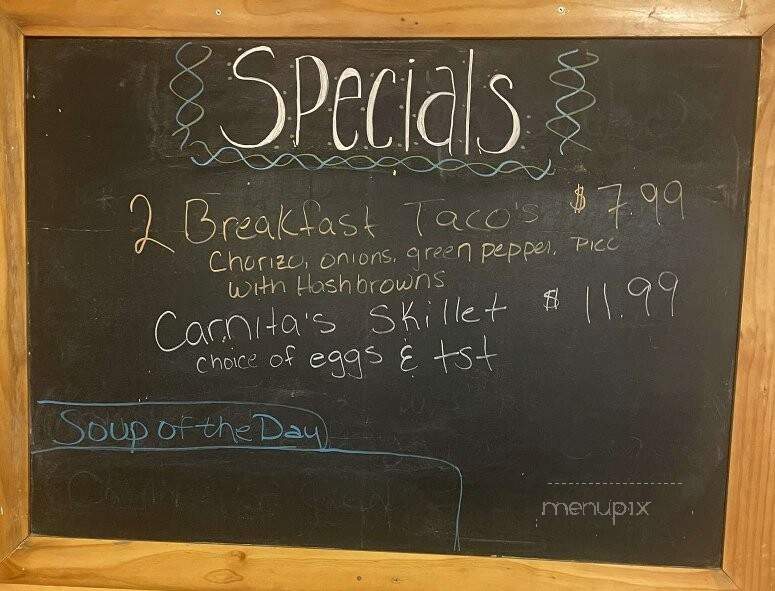 Specials
2 Breakfast Taco's $7.99
Chorizo, onions, green pepper, Pico
with Hashbrowns
Carnita's Skillet $11.99
choice of eggs & tst
Soup of the Day
menupix